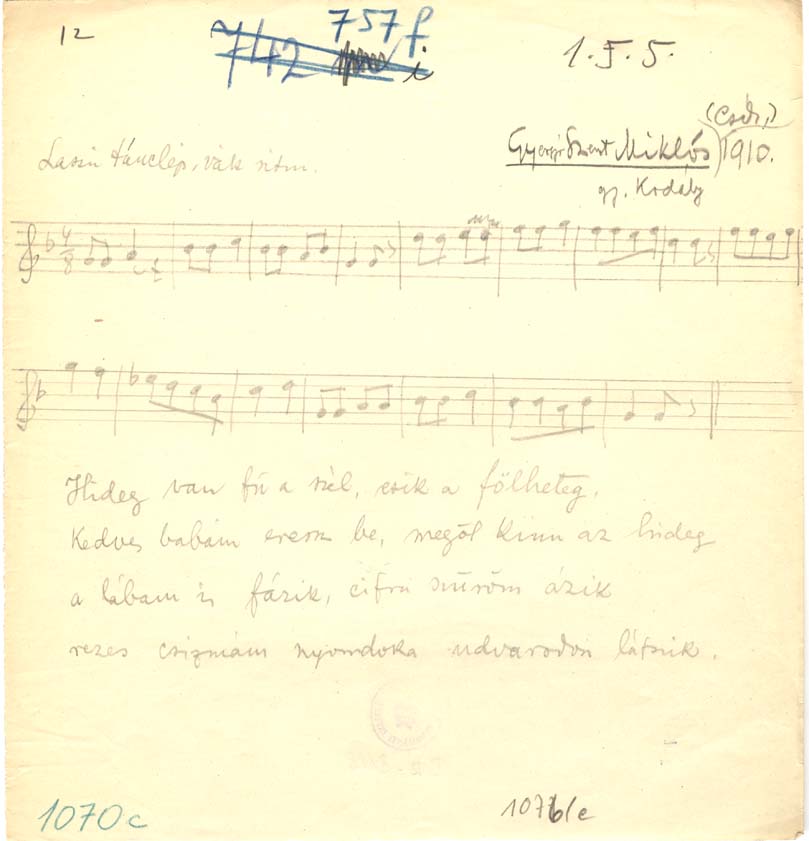 12
757 f
742 i
1. F. 5.
(Csík)
Gyergyó Szent Miklós 1910.
gy. Kodály
Lassú tánclép,
4
8
Hideg van fú a szél, esik a fölheteg,
Kedves babám eressz be, megöl kinn az hideg
a lábam is fázik, cifra szűröm ázik
rezes csizmám nyomdoka udvarodon látszik.
1070c